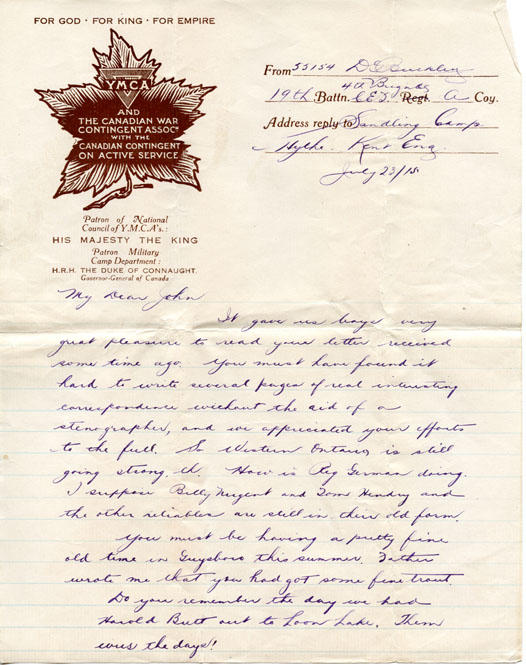 FOR GOD · FOR KING · FOR EMPIRE
YMCA
AND
THE CANADIAN WAR
CONTINGENT ASSOCN
WITH THE
CANADIAN CONTINGENT
ON ACTIVE SERVICE
Patron of National
Council of Y.M.C.A's.:
HIS MAJESTY THE KING
Patron Military
Camp Department:
H.R.H. THE DUKE OF CONNAUGHT.
Governor-General of Canada
From 55154 D E Buckley
4th Brigade
19th Battn. CEF Regt. A Coy.
Address reply to Sandling Camp
Hythe. Kent Eng.
July 23/15
My Dear John
It gave us boys very
great pleasure to read your letter received
some time ago. You must have found it
hard to write several pages of real interesting
correspondence without the aid of a
stenographer, and we appreciated your efforts
to the full. So Western Ontario is still
going strong eh. How is Reg German doing.
I suppose Billy Nugent and Tom Hendry and
the other reliables are still in their old form.
You must be having a pretty fine
old time in Guysboro this summer. Father
wrote me that you had got some fine trout.
Do you remember the day we had
Harold Butt out to Loon Lake. Them
wus the days!